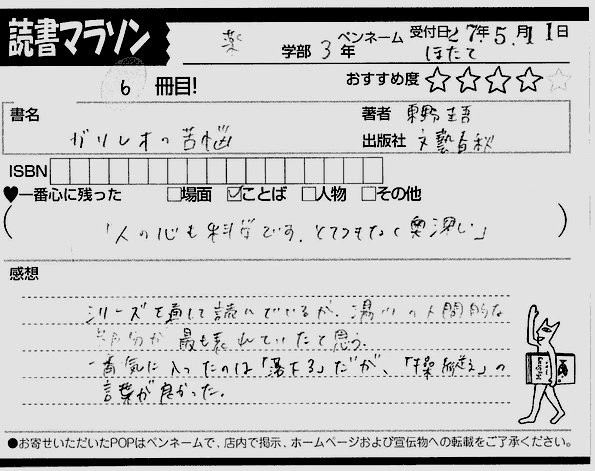 読書マラソン
薬 学部 3年 ペンネーム ほたて 受付日27年5月11日
6 冊目! おすすめ度 ★★★★☆
書名 ガリレオの苦悩 著者 東野圭吾
出版社 文藝春秋
ISBN
♥一番心に残った □場面 ☑ことば □人物 □その他
(「人の心も科学です。とてつもなく奥深い」)
感想
シリーズを通して読んでいるが、湯川の人間的な
部分が最も表れていたと思う。
一番気に入ったのは「落下る」だが、「操縦る」の
言葉が良かった。
●お寄せいただいたPOPはペンネームで、店内で掲示、ホームページおよび宣伝物への転載をご了承ください。